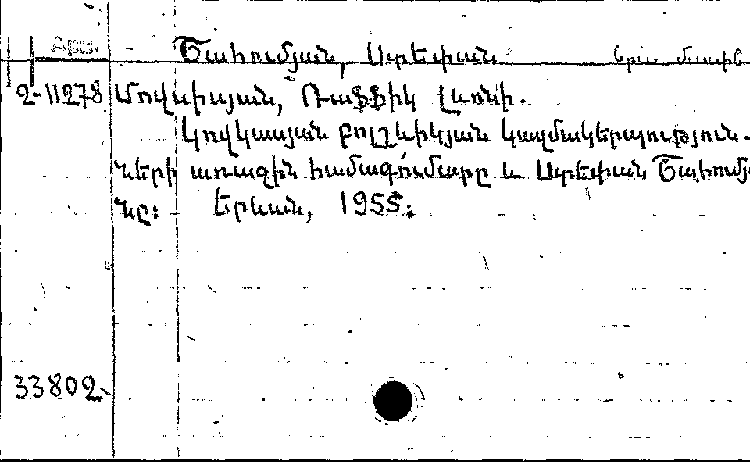 Շահումյան, Ստեփան նրա մասին
2-11278 Մովսիսյան, Րաֆֆիկ Լևոնի.
Կովկասյան բոլշևիկյան կազմակերպություն-
ների առաջին համագումարը և Ստեփան Շահումյա
նը: Երևան, 1955:
33802